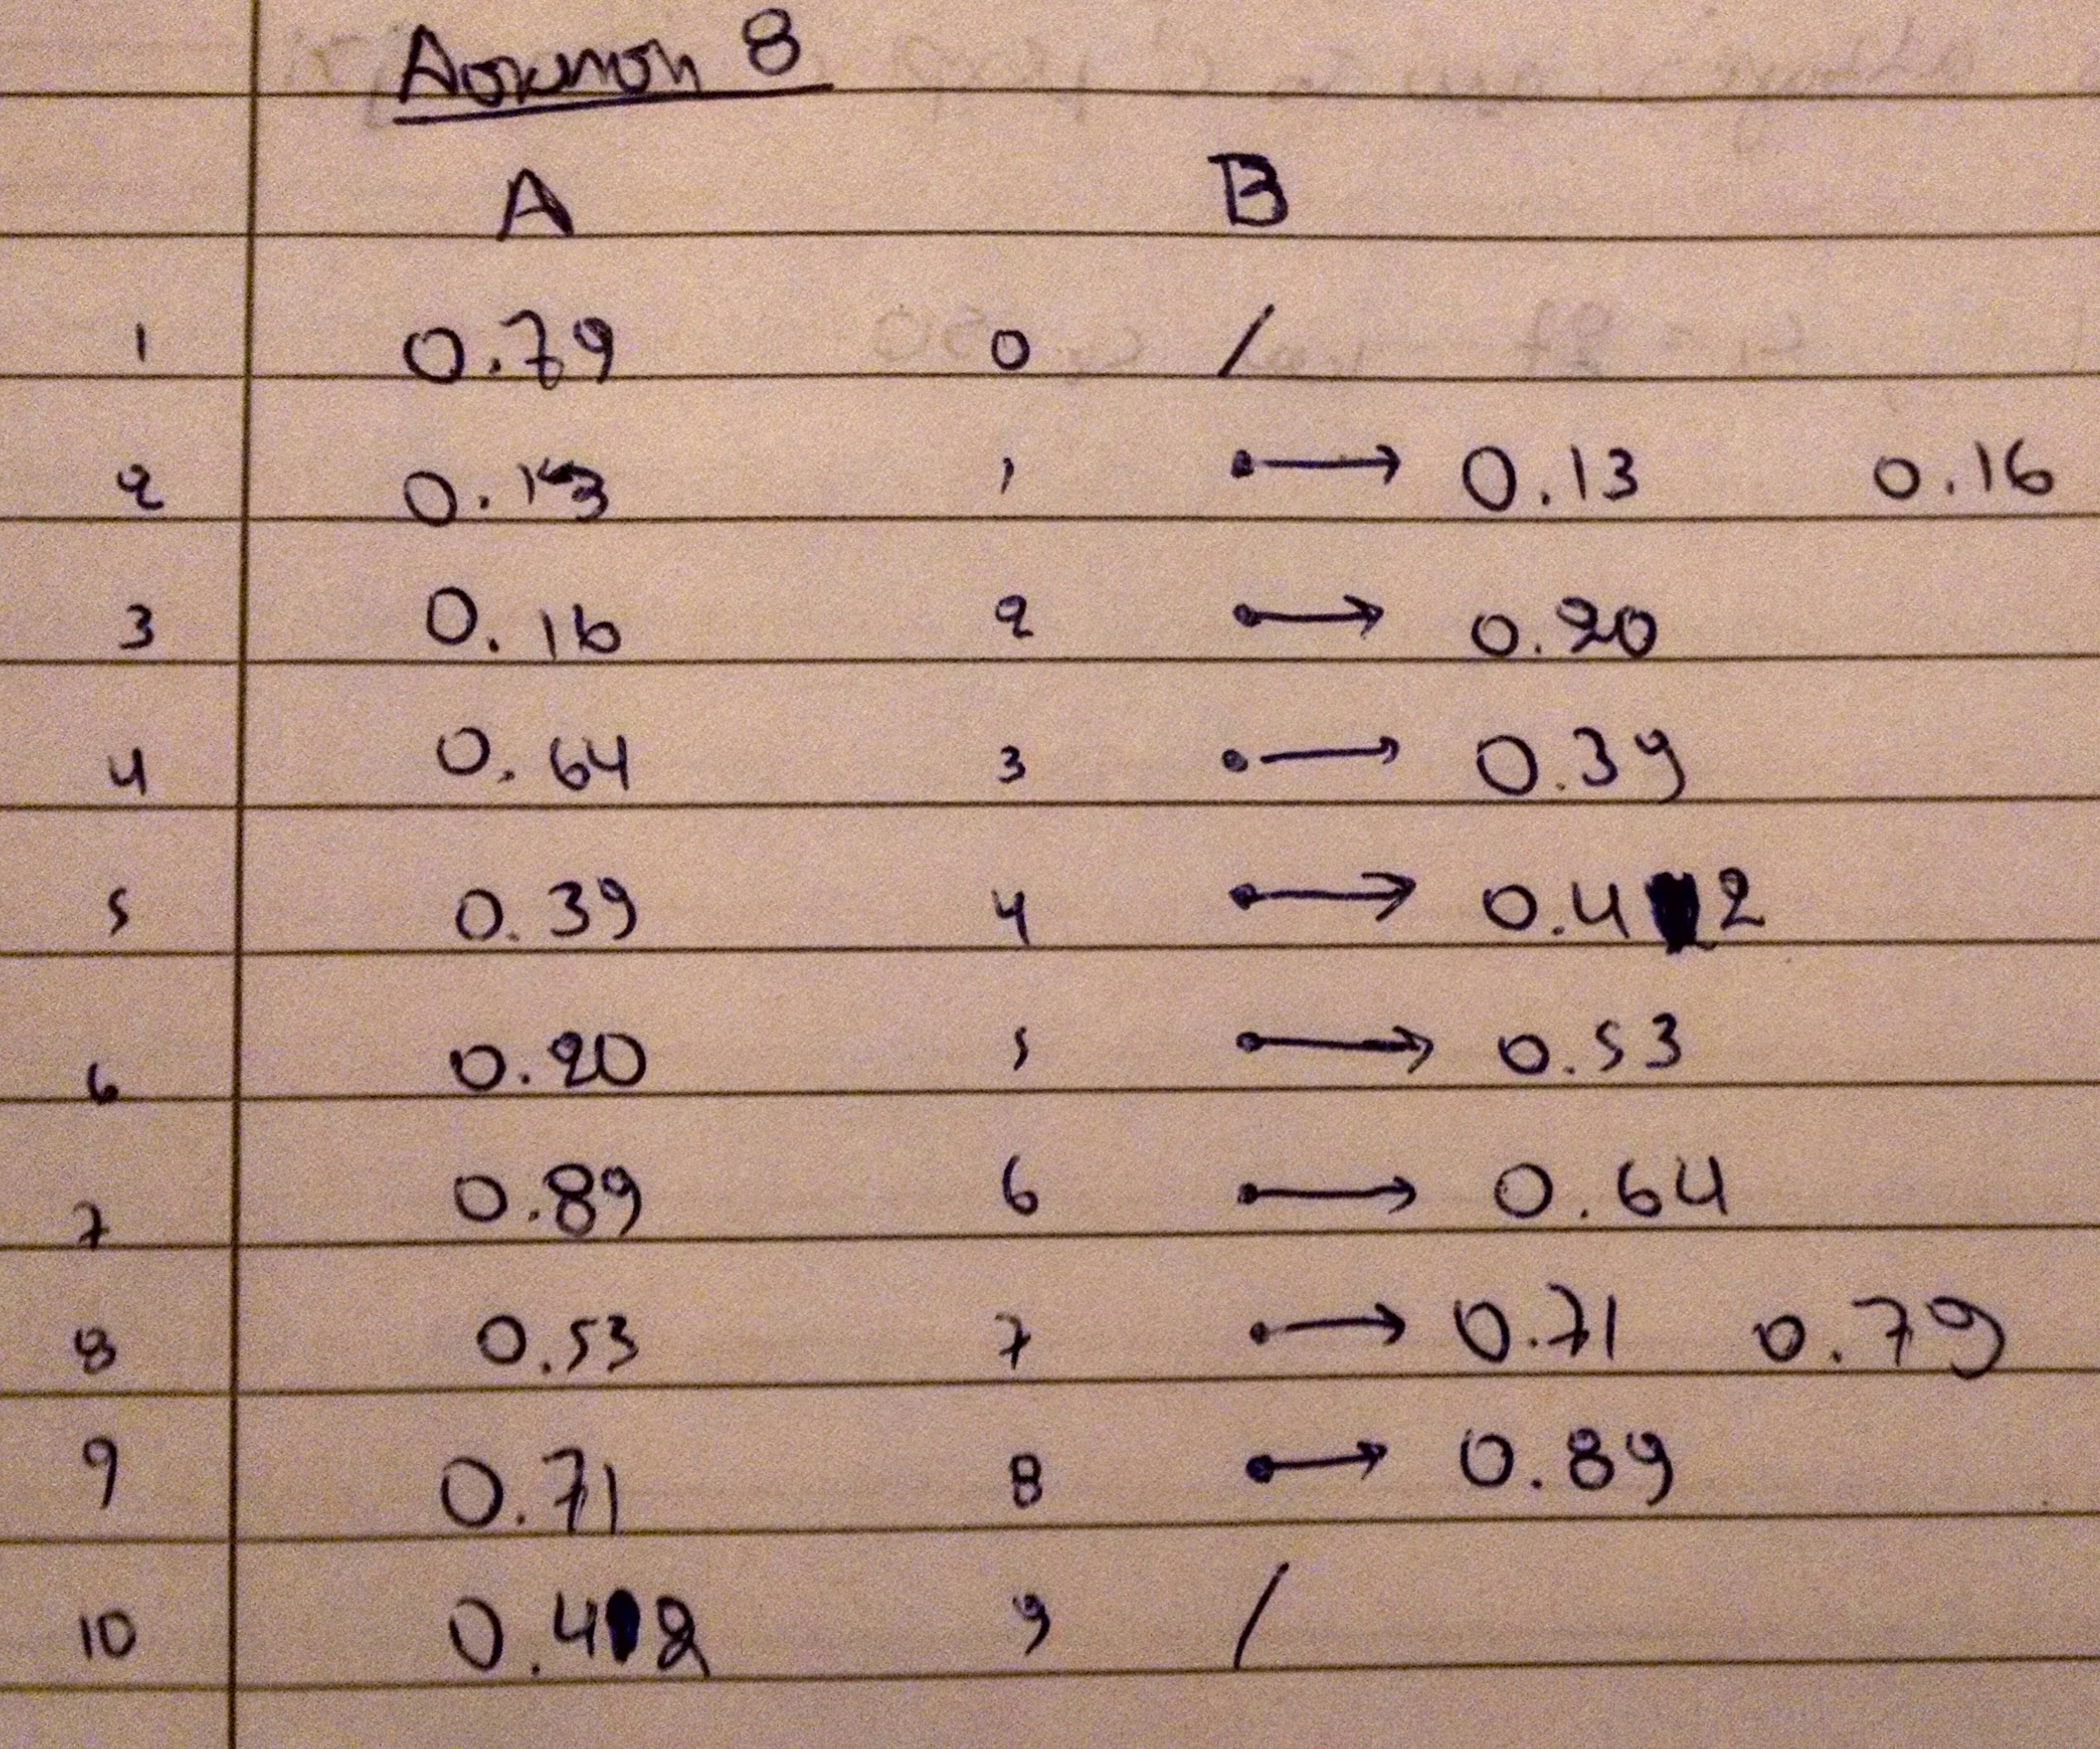 Άσκηση 8
A B
1 0.79 0 /
2 0.13 1 → 0.13 0.16
3 0.16 2 → 0.20
4 0.64 3 → 0.39
5 0.39 4 → 0.42
6 0.20 5 → 0.53
7 0.89 6 → 0.64
8 0.53 7 → 0.71 0.79
9 0.71 8 → 0.89
10 0.42 9 /